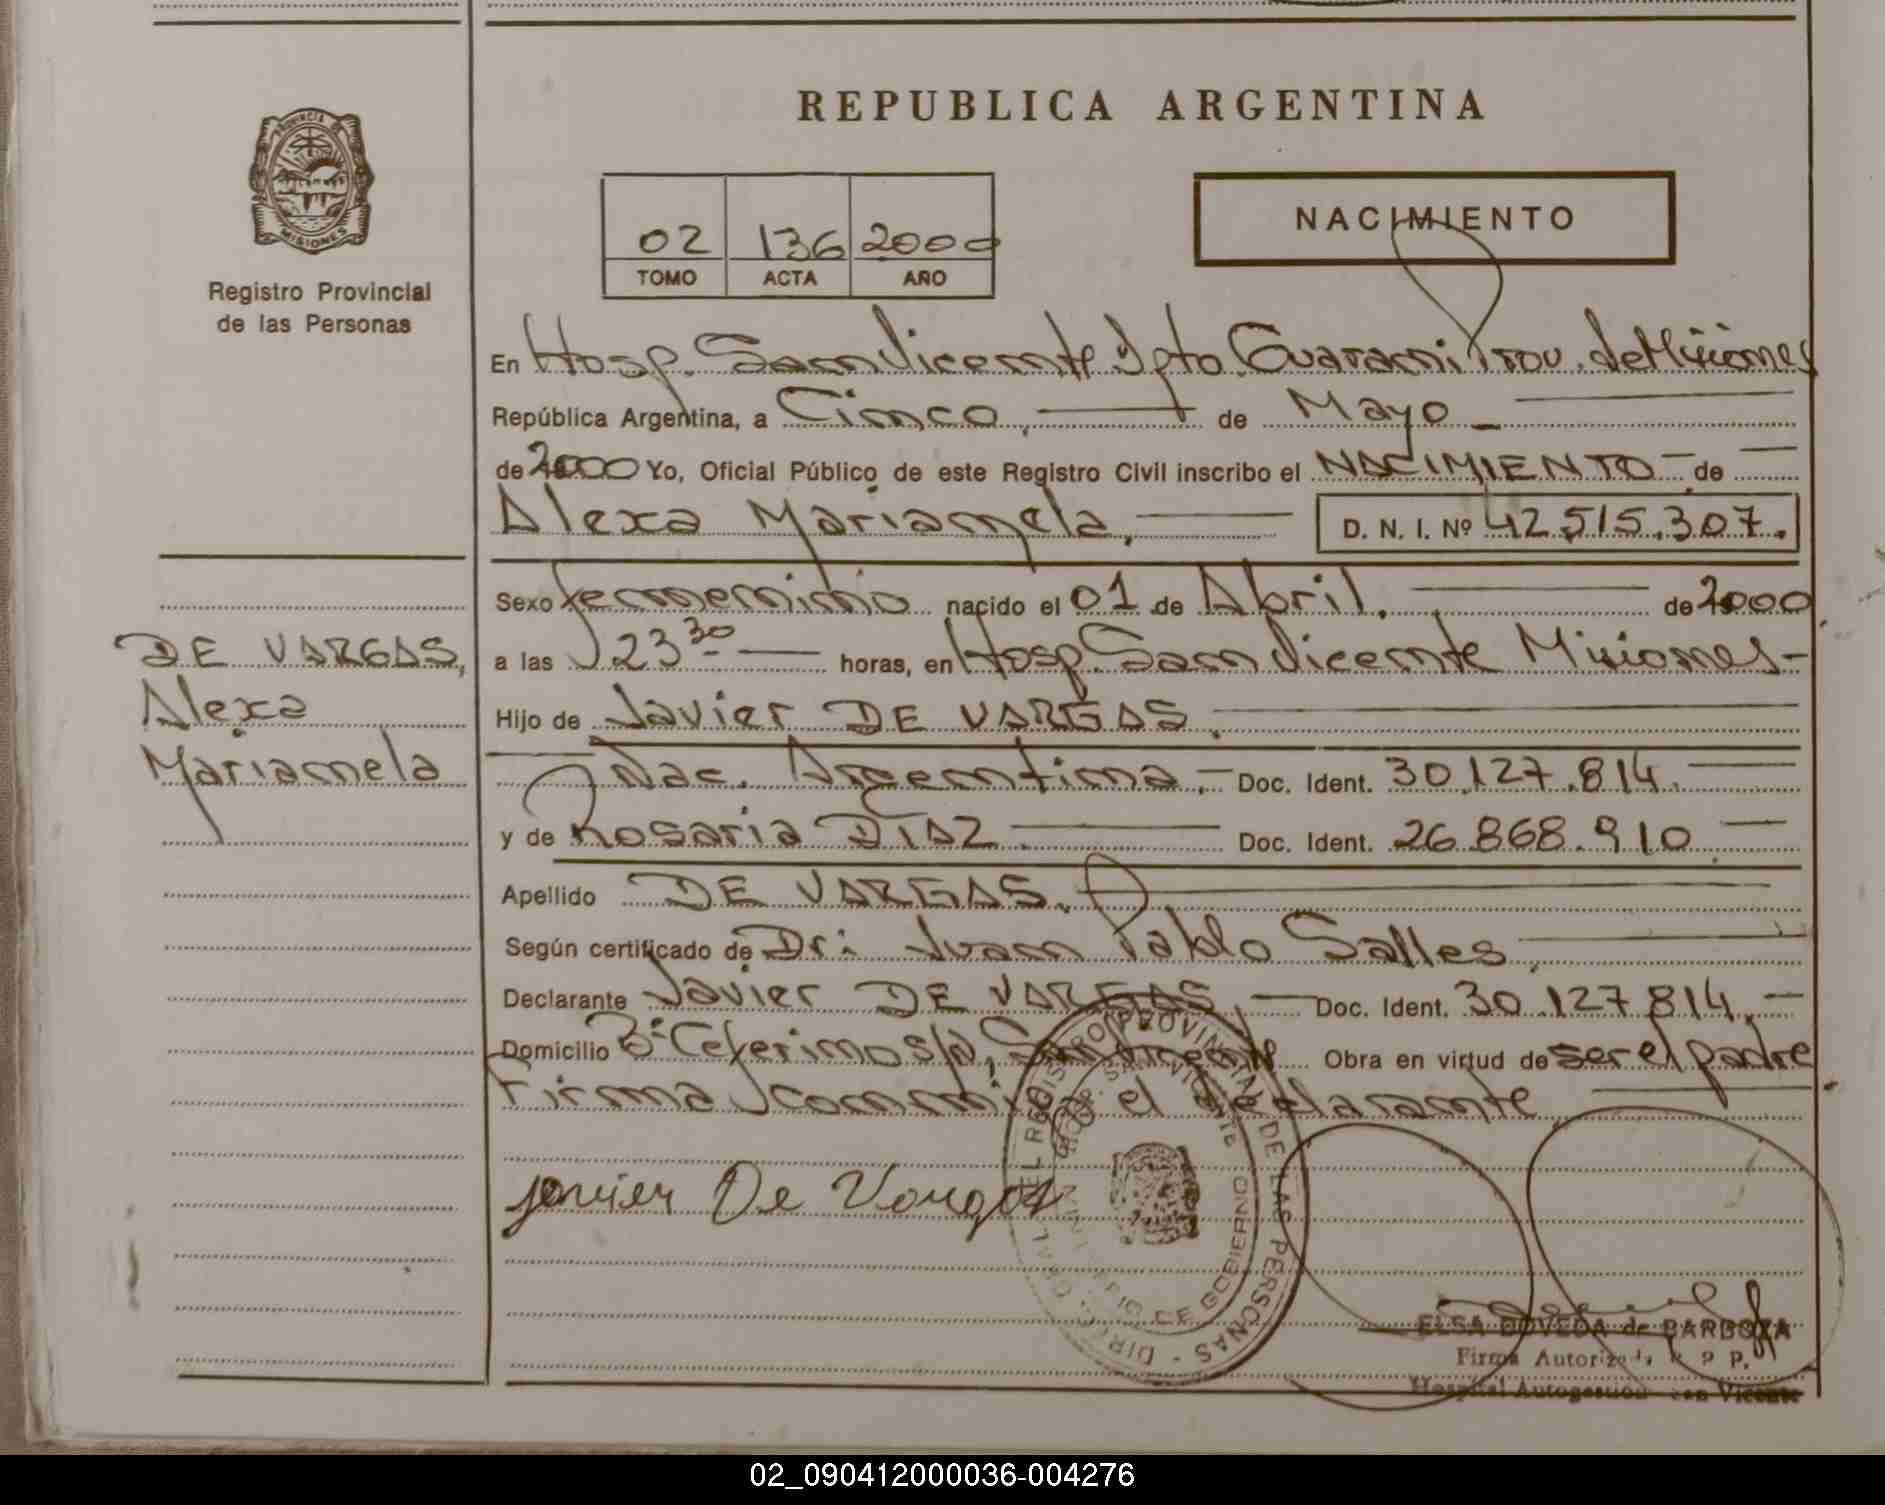 REPUBLICA ARGENTINA
PROVINCIA DE
MISIONES
Registro Provincial
de las Personas
02 136 2000
TOMO ACTA AÑO
NACIMIENTO
En Hosp. San Vicente Dpto. Guarani Prov. de Misiones
República Argentina, a Cinco de Mayo
de 2000 Yo, Oficial Público de este Registro Civil inscribo el NACIMIENTO de
Alexa Mariamela. D. N. I. Nº 42.515.307.
Sexo femenino nacido el 01 de Abril. de 2000
a las 23 30 horas, en Hosp. San Vicente Misiones-
Hijo de Javier DE VARGAS.
Nac. Argentina.- Doc. Ident. 30.127.814.
y de Rosaria DIAZ. Doc. Ident. 26.868.910.
Apellido DE VARGAS.
Según certificado de Dr: Juan Pablo Salles.
Declarante Javier DE VARGAS. Doc. Ident. 30.127.814.
Domicilio Bº Ceferino s/n, San Vicente Obra en virtud de ser el padre
Firma conmigo el declarante
DE VARGAS,
Alexa
Mariamela
Javier De Vargas
REGISTRO PROVINCIAL DE LAS PERSONAS
DE GOBIERNO
ELSA BOVEDA de BARBOZA
Firma Autorizada R. P. P.
Hospital Autogestión San Vicente
02_090412000036-004276